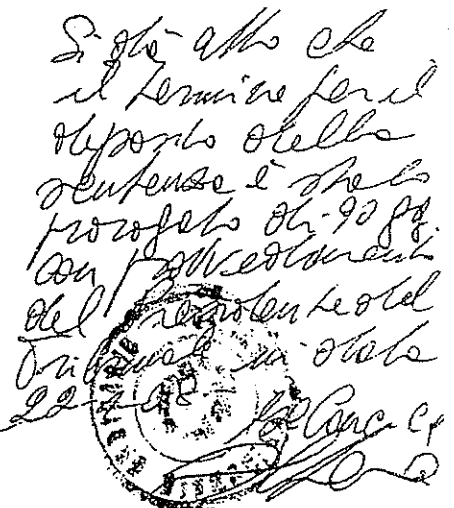 Si dà atto che
il termine per il
deposito della
sentenza è stato
prorogato di 90 gg.
con provvedimento
del Presidente del
Tribunale in data
Il Canc.